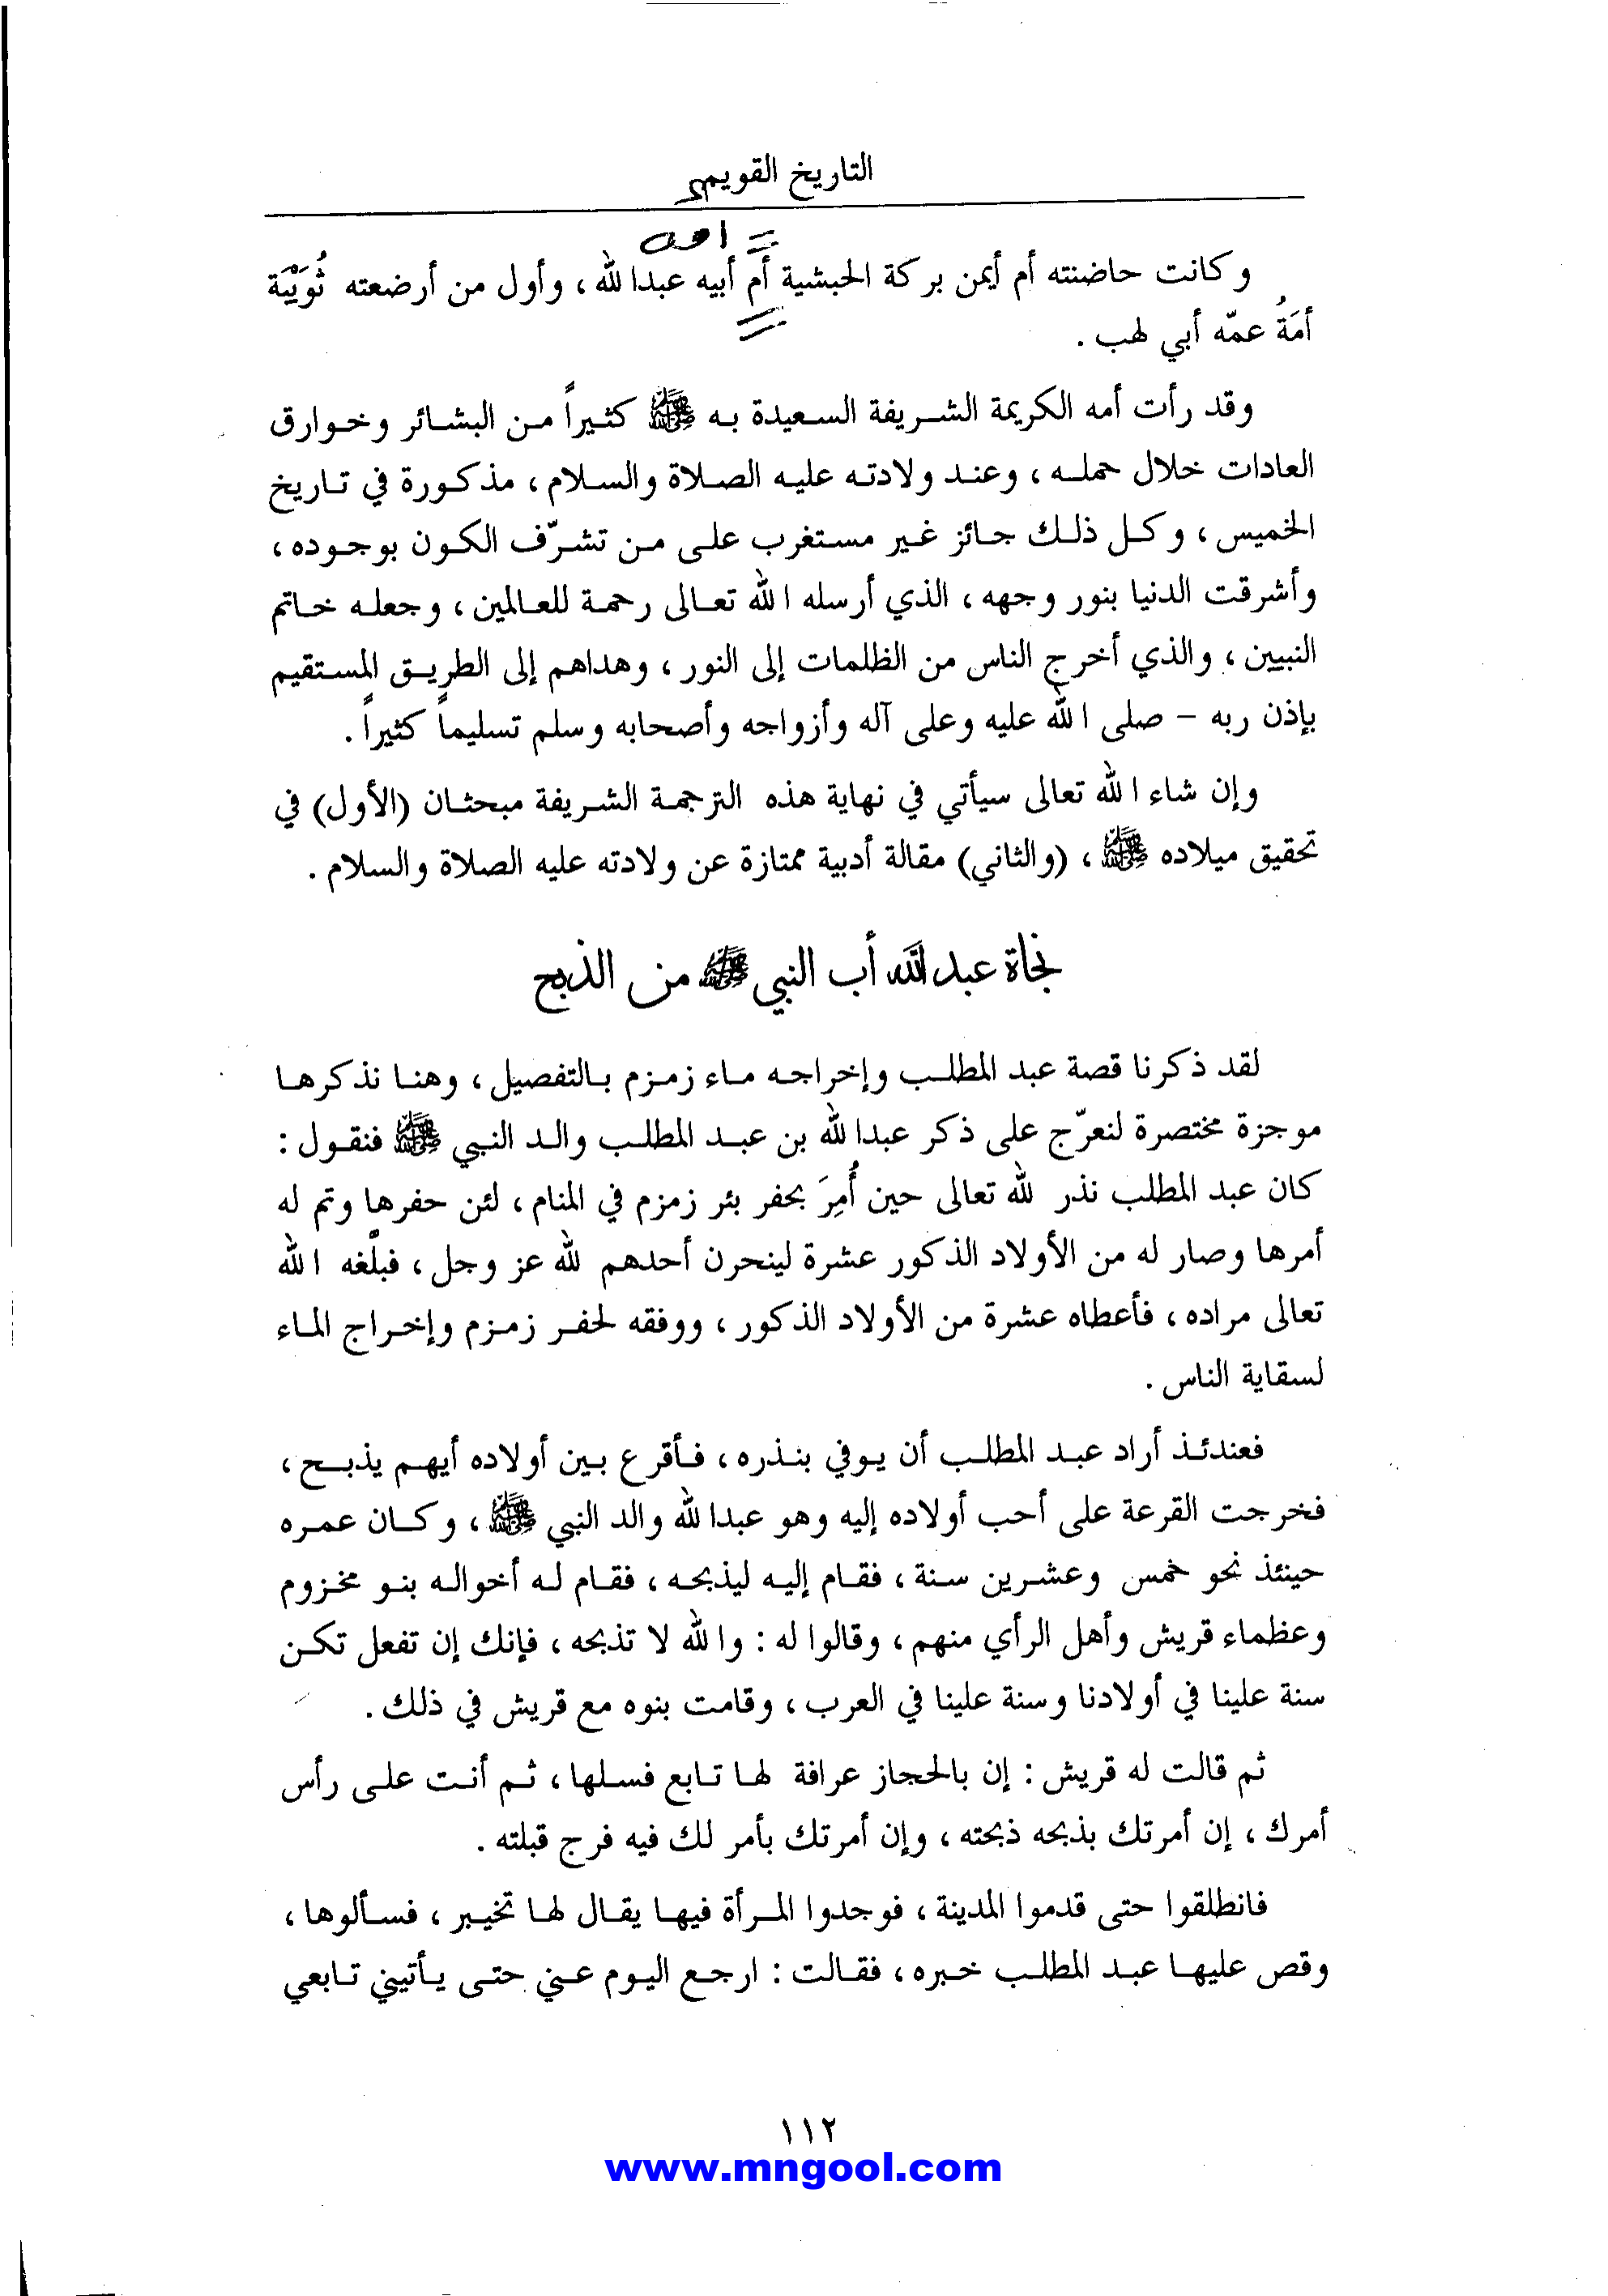 التاريخ القويم
وكانت حاضنته أم أيمن بركة الحبشية أم أبيه عبدالله، وأول من أرضعته ثُوَيْبَة
أمَةُ عمّه أبي لهب.
وقد رأت أمه الكريمة الشريفة السعيدة به ﷺ كثيراً من البشائر وخوارق
العادات خلال حمله، وعند ولادته عليه الصلاة والسلام، مذكورة في تاريخ
الخميس، وكل ذلك جائز غير مستغرب على من تشرّف الكون بوجوده،
وأشرقت الدنيا بنور وجهه، الذي أرسله الله تعالى رحمة للعالمين، وجعله خاتم
النبيين، والذي أخرج الناس من الظلمات إلى النور، وهداهم إلى الطريق المستقيم
بإذن ربه – صلى الله عليه وعلى آله وأزواجه وأصحابه وسلم تسليماً كثيراً.
وإن شاء الله تعالى سيأتي في نهاية هذه الترجمة الشريفة مبحثان (الأول) في
تحقيق ميلاده ﷺ، (والثاني) مقالة أدبية ممتازة عن ولادته عليه الصلاة والسلام.
نجاة عبد الله أب النبي ﷺ من الذبح
لقد ذكرنا قصة عبد المطلب وإخراجه ماء زمزم بالتفصيل، وهنا نذكرها
موجزة مختصرة لنعرّج على ذكر عبدالله بن عبد المطلب والد النبي ﷺ فنقول:
كان عبد المطلب نذر لله تعالى حين أُمِرَ بحفر بئر زمزم في المنام، لئن حفرها وتم له
أمرها وصار له من الأولاد الذكور عشرة لينحرن أحدهم لله عز وجل، فبلّغه الله
تعالى مراده، فأعطاه عشرة من الأولاد الذكور، ووفقه لحفر زمزم وإخراج الماء
لسقاية الناس.
فعندئذ أراد عبد المطلب أن يوفي بنذره، فأقرع بين أولاده أيهم يذبح،
فخرجت القرعة على أحب أولاده إليه وهو عبدالله والد النبي ﷺ، وكان عمره
حينئذ نحو خمس وعشرين سنة، فقام إليه ليذبحه، فقام له أخواله بنو مخزوم
وعظماء قريش وأهل الرأي منهم، وقالوا له: والله لا تذبحه، فإنك إن تفعل تكن
سنة علينا في أولادنا وسنة علينا في العرب، وقامت بنوه مع قريش في ذلك.
ثم قالت له قريش: إن بالحجاز عرافة لها تابع فسلها، ثم أنت على رأس
أمرك، إن أمرتك بذبحه ذبحته، وإن أمرتك بأمر لك فيه فرج قبلته.
فانطلقوا حتى قدموا المدينة، فوجدوا المرأة فيها يقال لها تخيبر، فسألوها،
وقص عليها عبد المطلب خبره، فقالت: ارجع اليوم عني حتى يأتيني تابعي
١١٢
www.mngool.com